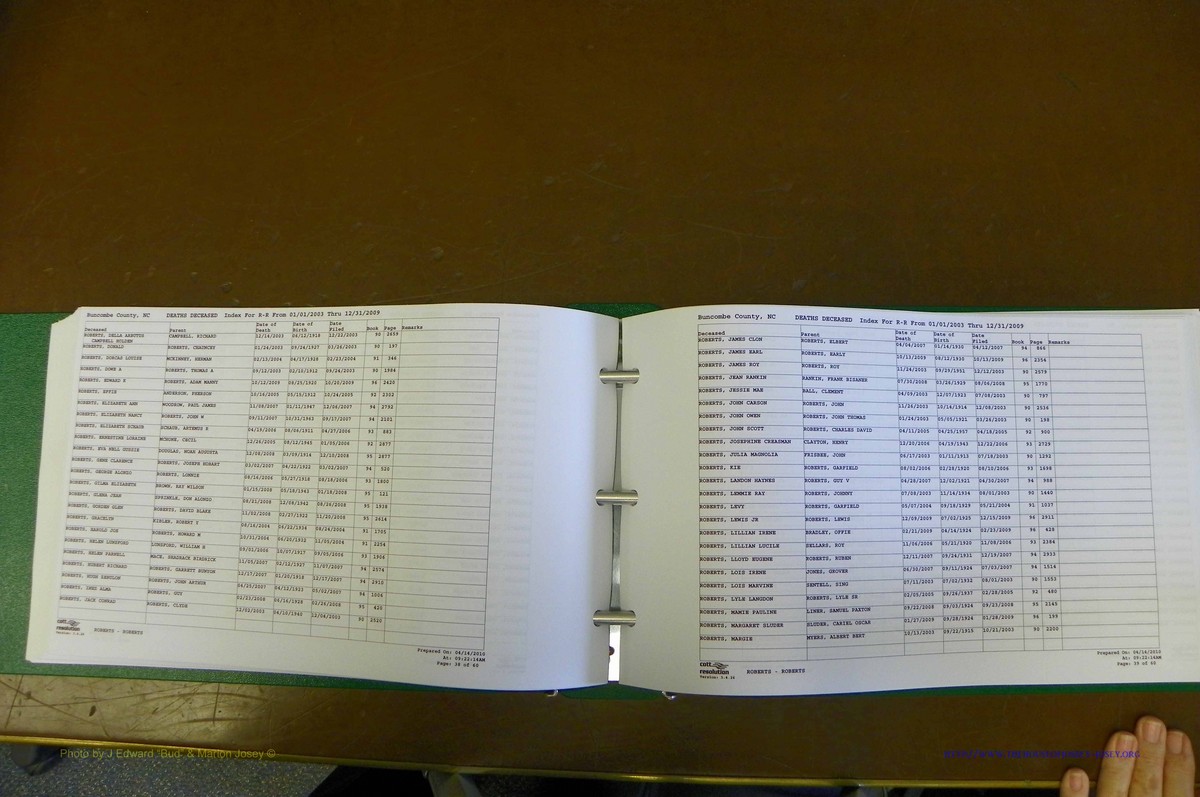 Buncombe County, NC DEATHS DECEASED Index For R-R From 01/01/2003 Thru 12/31/2009
Deceased Parent Date of Death Date of Birth Date Filed Book Page Remarks
ROBERTS, DELLA ARBUTUS CAMPBELL, RICHARD 12/14/2003 06/12/1918 12/22/2003 90 2659
CAMPBELL HOLDEN
ROBERTS, DONALD ROBERTS, CHAUNCEY 01/24/2003 09/26/1927 03/26/2003 90 197
ROBERTS, DORCAS LOUISE MCKINNEY, HERMAN 02/13/2004 04/17/1928 02/23/2004 91 346
ROBERTS, THOMAS A 09/12/2003 02/10/1912 09/24/2003 90 1984
ROBERTS, EDWARD E ROBERTS, ADAM MANNY 10/12/2009 05/25/1920 10/26/2009 96 2420
ROBERTS, EFFIE ANDERSON, PEERSON 10/16/2005 05/15/1912 10/24/2005 92 2302
ROBERTS, ELIZABETH ANN WOODROW, PAUL JAMES 11/08/2007 01/11/1947 12/06/2007 94 2792
ROBERTS, ELIZABETH NANCY ROBERTS, JOHN W 09/11/2007 10/31/1963 09/17/2007 94 2101
ROBERTS, ELIZABETH SCHAUB SCHAUB, ARTEMUS R 04/19/2006 08/06/1911 04/27/2006 93 883
ROBERTS, ERNESTINE LORAINE MCHONE, CECIL 12/26/2005 08/12/1945 01/05/2006 92 2877
ROBERTS, EVA NELL GUSSIE DOUGLAS, NOAH AUGUSTA 12/08/2008 03/09/1914 12/10/2008 95 2877
ROBERTS, GENE CLARENCE ROBERTS, JOSEPH HOBART 03/02/2007 04/22/1922 03/02/2007 94 520
ROBERTS, GEORGE ALONZO ROBERTS, LONNIE 08/16/2006 05/27/1918 08/18/2006 93 1800
ROBERTS, GILMA ELIZABETH BROWN, RAY WILSON 01/15/2008 05/18/1943 01/18/2008 95 121
ROBERTS, GLENA JEAN SPRINKLE, DON ALONZO 08/21/2008 12/06/1942 08/26/2008 95 1938
ROBERTS, GORDEN GLEN ROBERTS, DAVID BLAKE 11/02/2008 02/27/1922 11/20/2008 95 2614
ROBERTS, GRACELYN KIBLER, ROBERT T 08/14/2004 06/22/1934 08/24/2004 91 1705
ROBERTS, HAROLD JOE ROBERTS, HOWARD M 10/31/2004 06/20/1932 11/05/2004 91 2254
ROBERTS, HELEN LUNSFORD LUNSFORD, WILLIAM B 09/01/2006 10/07/1917 09/05/2006 93 1906
ROBERTS, HELEN PARNELL MACE, SHADRACK KINDRICK 11/05/2007 02/12/1927 11/07/2007 94 2574
ROBERTS, HUBERT RICHARD ROBERTS, GARRETT BUNYON 12/17/2007 01/20/1918 12/17/2007 94 2910
ROBERTS, HUGH SENYLON ROBERTS, JOHN ARTHUR 04/20/2007 04/12/1933 05/02/2007 94 1006
ROBERTS, INEZ ALMA ROBERTS, GUY 02/23/2008 06/16/1926 02/26/2008 95 420
ROBERTS, JACK CONRAD ROBERTS, CLYDE 12/02/2003 04/10/1940 12/04/2003 90 2520
cott resolution
ROBERTS - ROBERTS
Prepared On: 04/14/2010
At: 09:22:16AM
Page: 38 of 60
Buncombe County, NC DEATHS DECEASED Index For R-R From 01/01/2003 Thru 12/31/2009
Deceased Parent Date of Death Date of Birth Date Filed Book Page Remarks
ROBERTS, JAMES CLON ROBERTS, ELBERT 04/04/2007 01/14/1930 04/12/2007 94 866
ROBERTS, JAMES EARL ROBERTS, EARLY 10/13/2009 08/12/1930 10/13/2009 96 2354
ROBERTS, JAMES ROY ROBERTS, ROY 11/24/2003 09/29/1951 12/12/2003 90 2579
ROBERTS, JEAN RANKIN RANKIN, FRANK BIZANEE 07/30/2008 03/26/1929 08/06/2008 95 1770
ROBERTS, JESSIE MAE BALL, CLEMENT 04/09/2003 12/07/1923 07/08/2003 90 797
ROBERTS, JOHN CARSON ROBERTS, JOHN 11/26/2003 10/16/1914 12/08/2003 90 2536
ROBERTS, JOHN OWEN ROBERTS, JOHN THOMAS 01/24/2003 05/05/1921 03/26/2003 90 188
ROBERTS, JOHN SCOTT ROBERTS, CHARLES DAVID 04/11/2005 04/25/1957 04/18/2005 92 900
ROBERTS, JOSEPHINE CREASMAN CLAYTON, HENRY 12/20/2006 04/19/1943 12/22/2006 93 2729
ROBERTS, JULIA MAGNOLIA FRISBEE, JOHN 06/17/2003 01/11/1913 07/18/2003 90 1292
ROBERTS, KIE ROBERTS, GARFIELD 08/02/2006 01/28/1920 08/10/2006 93 1698
ROBERTS, LANDON HAYNES ROBERTS, GUY V 04/28/2007 12/02/1921 04/30/2007 94 988
ROBERTS, LEMMIE RAY ROBERTS, JOHNNY 07/08/2003 11/14/1934 08/01/2003 90 1440
ROBERTS, LEVY ROBERTS, GARFIELD 05/07/2004 09/18/1929 05/21/2004 91 1037
ROBERTS, LEWIS JR ROBERTS, LEWIS 12/09/2009 07/02/1925 12/15/2009 96 2911
ROBERTS, LILLIAN IRENE BRADLEY, OFFIE 02/21/2009 04/14/1924 02/25/2009 96 428
ROBERTS, LILLIAN LUCILE SELLARS, ROY 11/06/2006 05/21/1920 11/08/2006 93 2384
ROBERTS, LLOYD EUGENE ROBERTS, RUBEN 12/11/2007 09/24/1931 12/19/2007 94 2933
ROBERTS, LOIS IRENE JONES, GROVER 06/30/2007 09/11/1924 07/03/2007 94 1514
ROBERTS, LOIS MARVINE SENTELL, SING 07/11/2003 07/02/1932 08/01/2003 90 1553
ROBERTS, LYLE LANGDON ROBERTS, LYLE SR 02/05/2005 09/26/1937 02/28/2005 92 480
ROBERTS, MAMIE PAULINE LINER, SAMUEL PAXTON 09/22/2008 09/03/1924 09/23/2008 95 2145
ROBERTS, MARGARET SLUDER SLUDER, CARIEL OSCAR 01/27/2009 09/28/1924 01/28/2009 96 199
ROBERTS, MARGIE MYERS, ALBERT BERT 10/13/2003 09/22/1915 10/21/2003 90 2200
cott resolution
ROBERTS - ROBERTS
Prepared On: 04/14/2010
At: 09:22:16AM
Page: 39 of 60
Photo by J Edward "Bud" & Marion Josey ©